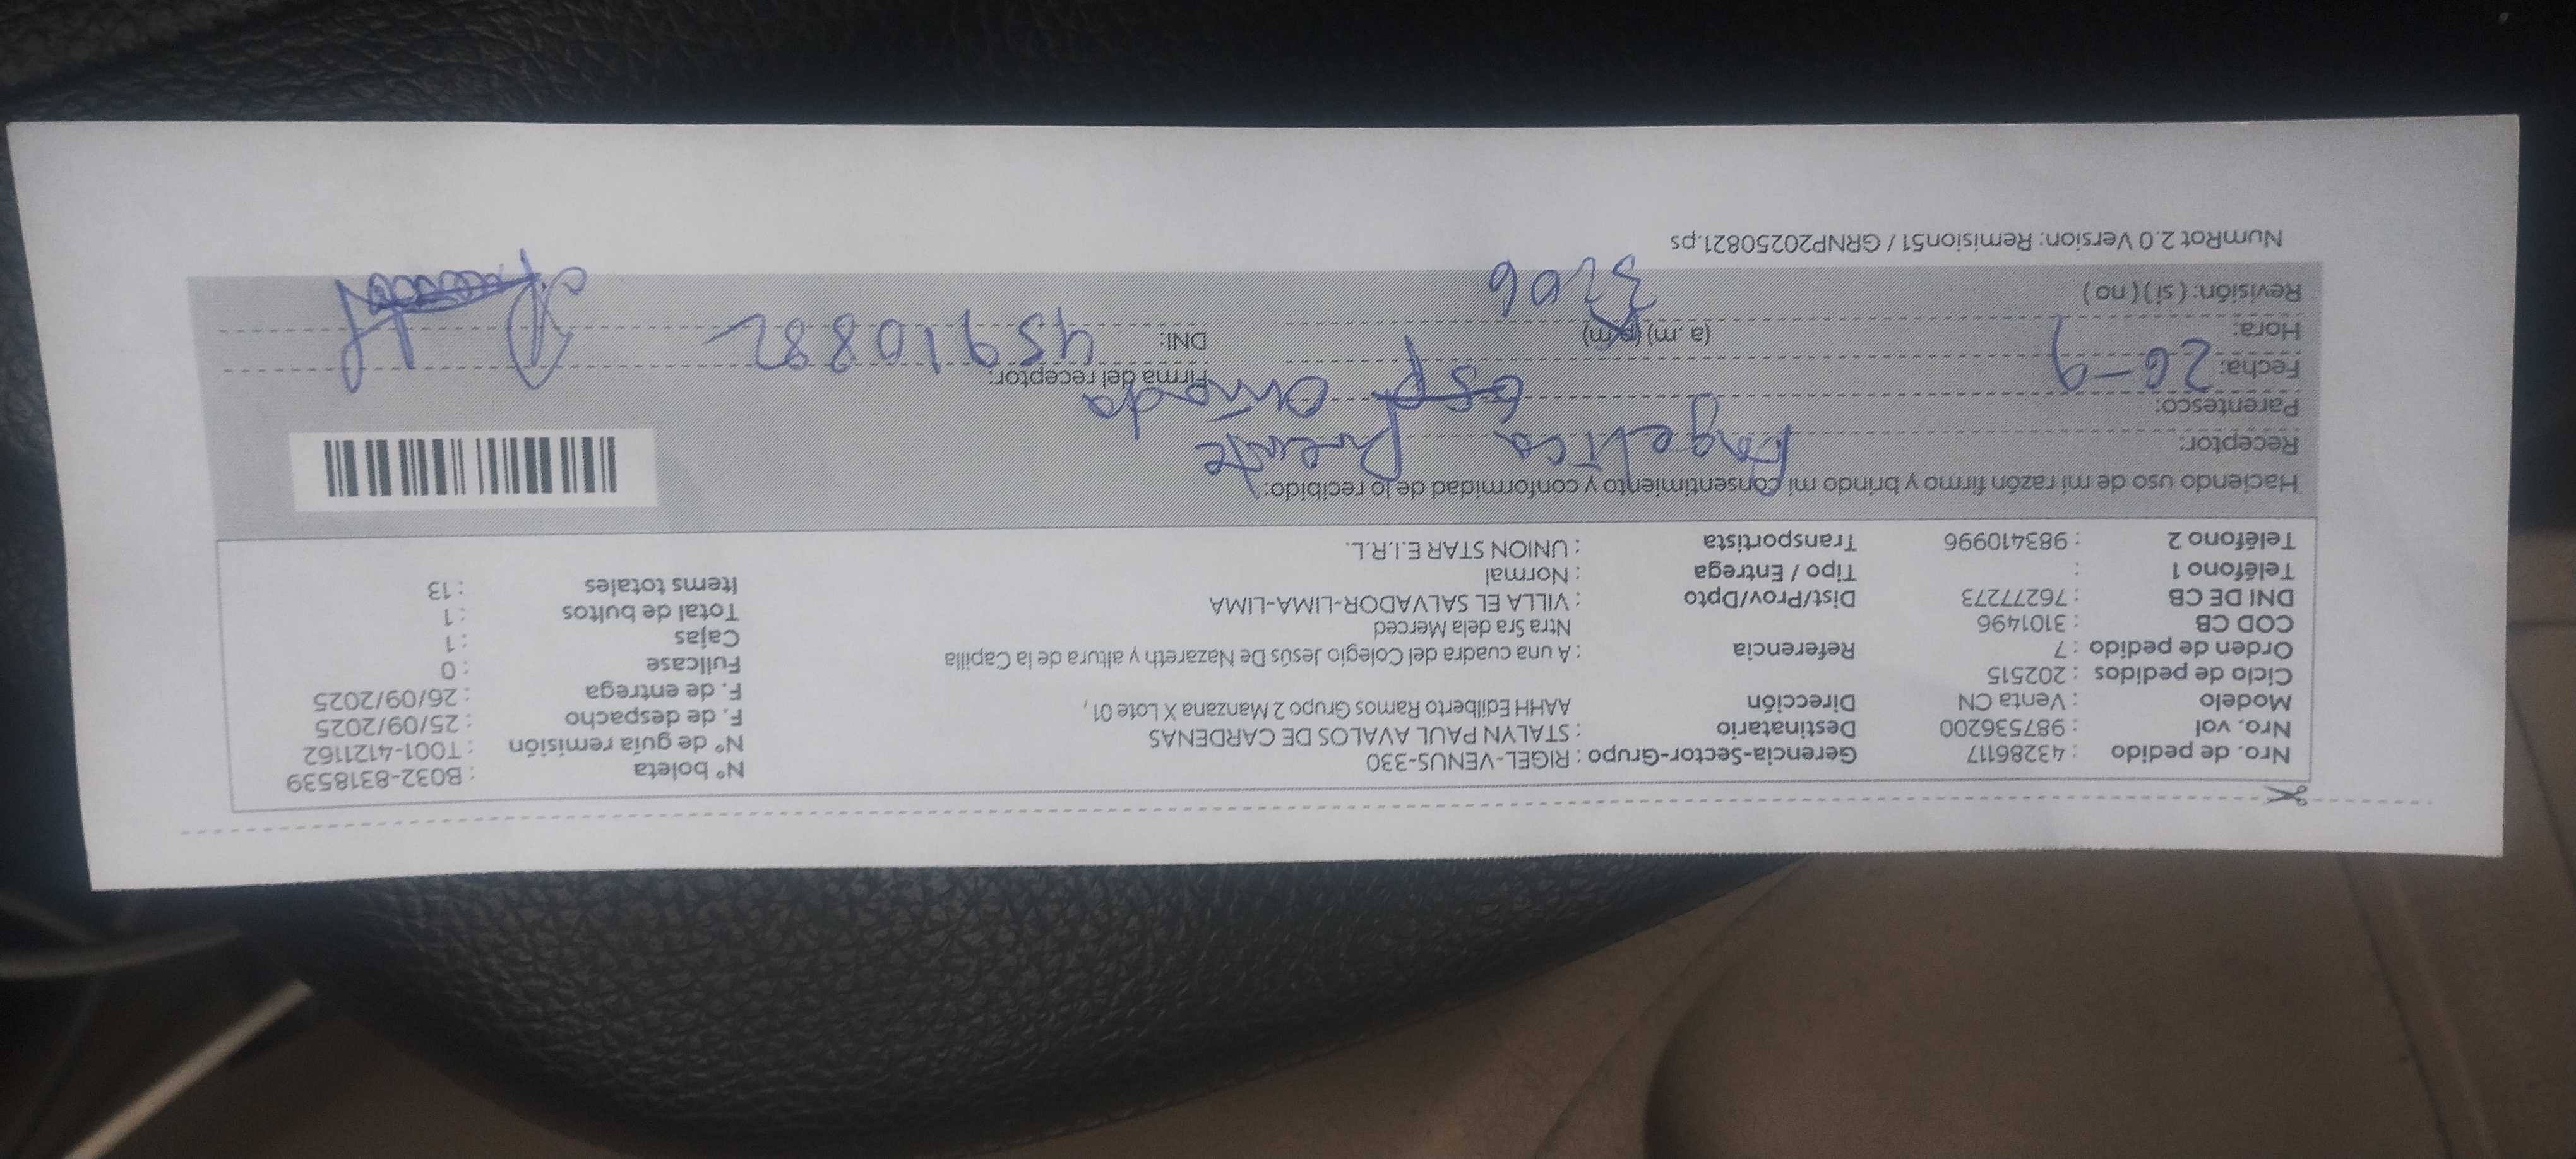 Nro. de pedido : 43286117 Gerencia-Sector-Grupo : RIGEL-VENUS-330 N° boleta : B032-8318539
Nro. vol : 987536200 Destinatario : STALYN PAUL AVALOS DE CARDENAS N° de guía remisión : T001-4121162
Modelo : Venta CN Dirección AAHH Edilberto Ramos Grupo 2 Manzana X Lote 01, F. de despacho : 25/09/2025
Ciclo de pedidos : 202515 F. de entrega : 26/09/2025
Orden de pedido : 7 Referencia : A una cuadra del Colegio Jesús De Nazareth y altura de la Capilla Fullcase : 0
COD CB : 3101496 Ntra Sra dela Merced Cajas : 1
DNI DE CB : 76277273 Dist/Prov/Dpto : VILLA EL SALVADOR-LIMA-LIMA Total de bultos : 1
Teléfono 1 : Tipo / Entrega : Normal Items totales : 13
Teléfono 2 : 983410996 Transportista : UNION STAR E.I.R.L.
Haciendo uso de mi razón firmo y brindo mi consentimiento y conformidad de lo recibido:
Receptor: Angelica Puente
Parentesco:
Fecha: 26-9 Firma del receptor:
Hora: (a .m) (p.m) DNI: 45910882
Revisión: ( si ) ( no )
NumRot 2.0 Version: Remision51 / GRNP20250821.ps